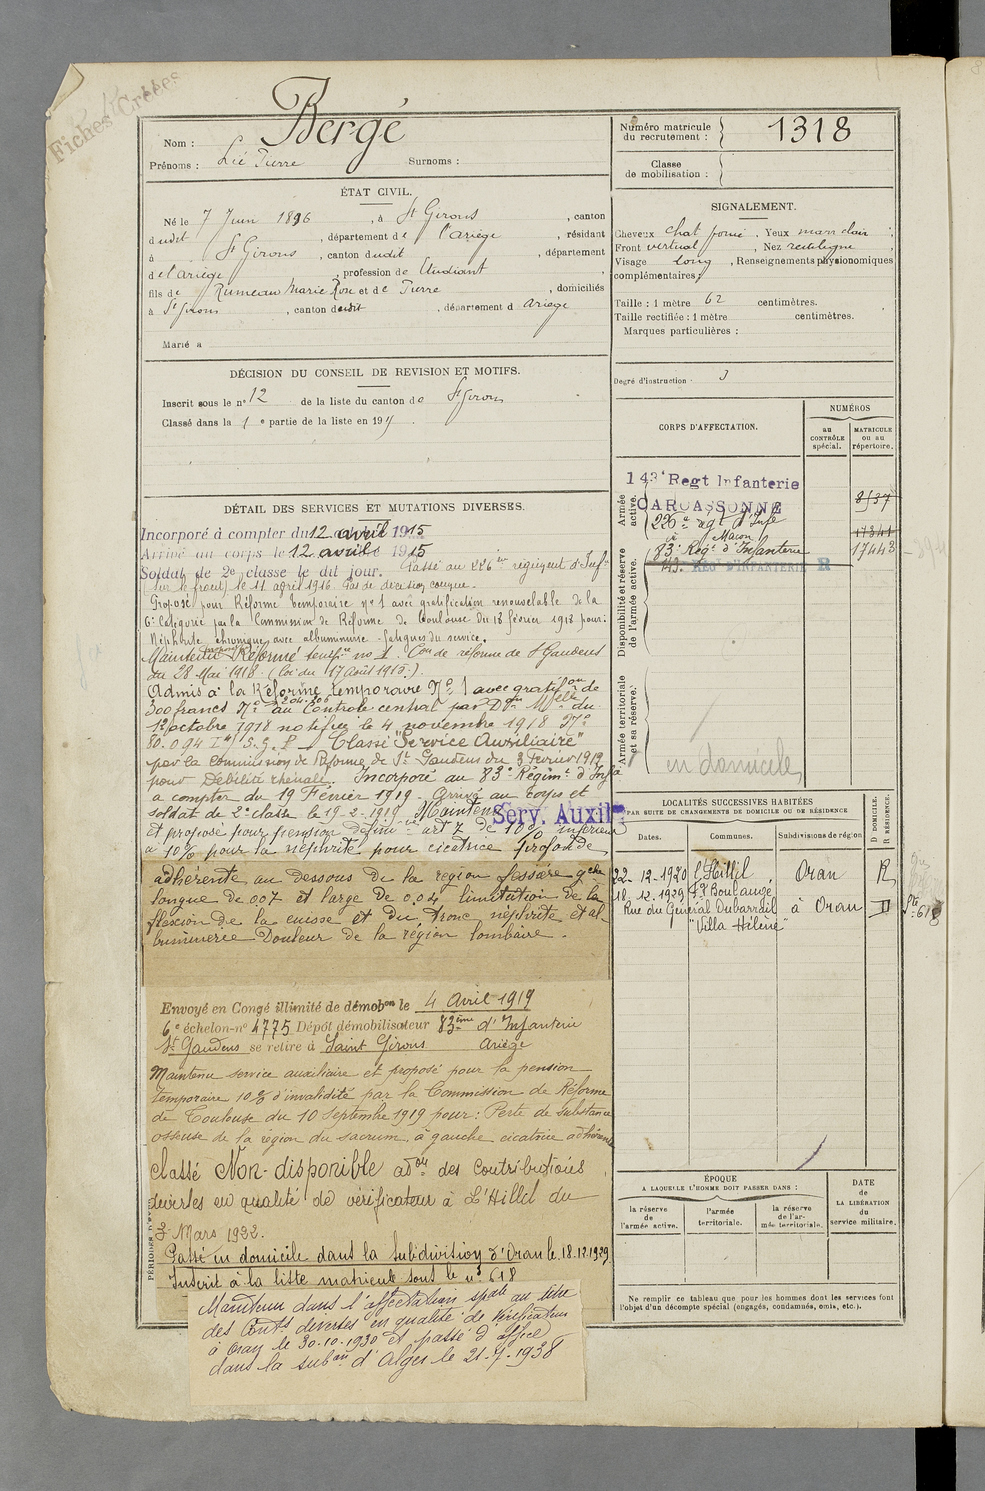 Fiches Créées
Nom : Bergé
Prénoms : Pierre Surnoms :
ÉTAT CIVIL.
Né le 7 Juin 1896, à St Girons, canton
dudit, département de l'Ariège, résidant
à St Girons, canton dudit, département
de l'Ariège, profession de Etudiant
fils de Pierre et de Rumeau Marie, domiciliés
à St Girons, canton dudit, département d Ariège
Marié à
DÉCISION DU CONSEIL DE REVISION ET MOTIFS.
Inscrit sous le n° 12 de la liste du canton de St Girons
Classé dans la 1e partie de la liste en 191
DÉTAIL DES SERVICES ET MUTATIONS DIVERSES.
Incorporé à compter du 12 avril 1915
Arrivé au corps le 12 avril 1915
Soldat de 2e classe le dit jour. Passé au 226e régiment d'Infie
(sur le front) le 11 avril 1916. Pas de décision connue.
Proposé pour Réforme temporaire n° 1 avec gratification renouvelable de la
6e Catégorie par la Commission de Réforme de Toulouse du 18 février 1918 pour:
Néphrite chronique avec albuminurie - fatigues du service.
Maintenu Réformé tempre no 1. Con de réforme de St Gaudens
du 28 Mai 1918 (loi du 17 Août 1915.)
Admis à la Réforme temporaire N° 1 avec gratifon de
300 francs N° au Contrôle central par Don Mlle du
octobre 1918 notifiée le 4 novembre 1918 N°
80.094 S.G.P - Classé "Service Auxiliaire"
par la Commission de Réforme de St Gaudens du 3 Février 1919
pour Débilité rhénale. Incorporé au 83e Régimt d'Infie
à compter du 19 Février 1919. Arrivé au corps et
soldat de 2e classe le 19-2-1919. Maintenu Serv. Auxil.
et proposé pour pension définive art 7 de 10% inférieur
à 10% pour la néphrite pour cicatrice profonde,
adhérente au dessous de la région fessière gche
longue de 0.07 et large de 0.04 limitation de la
flexion de la cuisse et du tronc, néphrite et al-
buminerie Douleur de la région lombaire.
Envoyé en Congé illimité de démobon le 4 Avril 1919
6e échelon-n° 4775 Dépôt démobilisateur 83ème d'Infanterie
St Gaudens se retire à Saint Girons Ariège
Maintenu service auxiliaire et proposé pour la pension
temporaire 10% d'invalidité par la Commission de Réforme
de Toulouse du 10 Septembre 1919 pour: Perte de substance
osseuse de la région du sacrum, à gauche, cicatrice adhérente
Classé Non-disponible adon des Contributions
diverses en qualité de vérificateur à L'Hillil du
3 Mars 1922.
Passé en domicile dans la subdivision d'Oran le 18.12.1929
Inscrit à la liste matricule sous le n° 618
Maintenu dans l'affectation spale au titre
des Conts diverses en qualité de Vérificateur
à Oran le 30-10-1930 et passé d'office
dans la subon d'Alger le 21-7-1938
Numéro matricule du recrutement : 1318
Classe de mobilisation :
SIGNALEMENT.
Cheveux chat foncé. Yeux marr clair
Front vertical, Nez rectiligne
Visage long, Renseignements physionomiques
complémentaires :
Taille : 1 mètre 62 centimètres.
Taille rectifiée : 1 mètre centimètres.
Marques particulières :
Degré d'instruction : 3
CORPS D'AFFECTATION.
NUMÉROS
au CONTRÔLE spécial.
MATRICULE ou au répertoire.
Armée active.
143e Regt Infanterie
CARCASSONNE
8137
226e regt d'Infie
à Macon
17341
83e Régt d'Infanterie
17448
143e REGt D'INFANTERIE R
Disponibilité et réserve de l'armée active.
Armée territoriale et sa réserve.
en domicile
LOCALITÉS SUCCESSIVES HABITÉES
PAR SUITE DE CHANGEMENTS DE DOMICILE OU DE RÉSIDENCE
Dates. Communes. Subdivisions de région
D DOMICILE. R RÉSIDENCE.
22-12-1920 l'Hillil Oran R
18.12.1929 Fg Boulanger
Rue du Général Dubarrail à Oran D
"Villa Hélène"
618
ÉPOQUE
A LAQUELLE L'HOMME DOIT PASSER DANS :
la réserve de l'armée active.
l'armée territoriale.
la réserve de l'armée territoriale.
DATE DE LA LIBÉRATION du service militaire.
Ne remplir ce tableau que pour les hommes dont les services font
l'objet d'un décompte spécial (engagés, condamnés, omis, etc.).
PÉRIODES